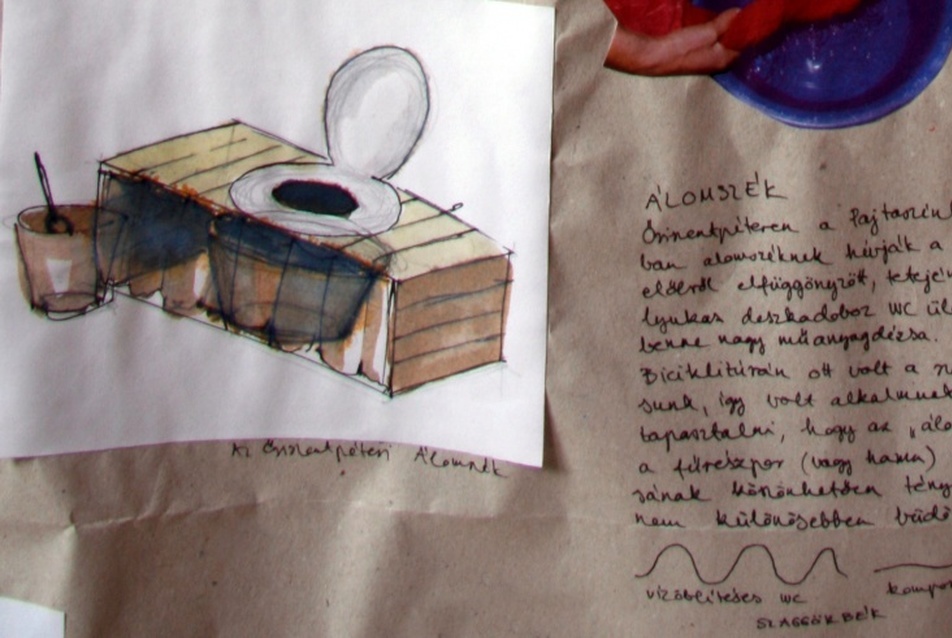 Az Őriszentpéteri Álomszék
ÁLOMSZÉK
Őriszentpéteren a Pajtaszín
ban alomszéknek hívják a
előlről elfüggönyzött, tetején
lyukas deszkadoboz WC ül
benne nagy műanyagdézsa.
Biciklitúrán ott volt a
sunk, így volt alkalmunk
tapasztalni, hogy az „álo
a fűrészpor (vagy hamu)
sának köszönhetően tény
nem különösebben büdö
vízöblítéses WC
kompo
SZAGGÖRBÉK